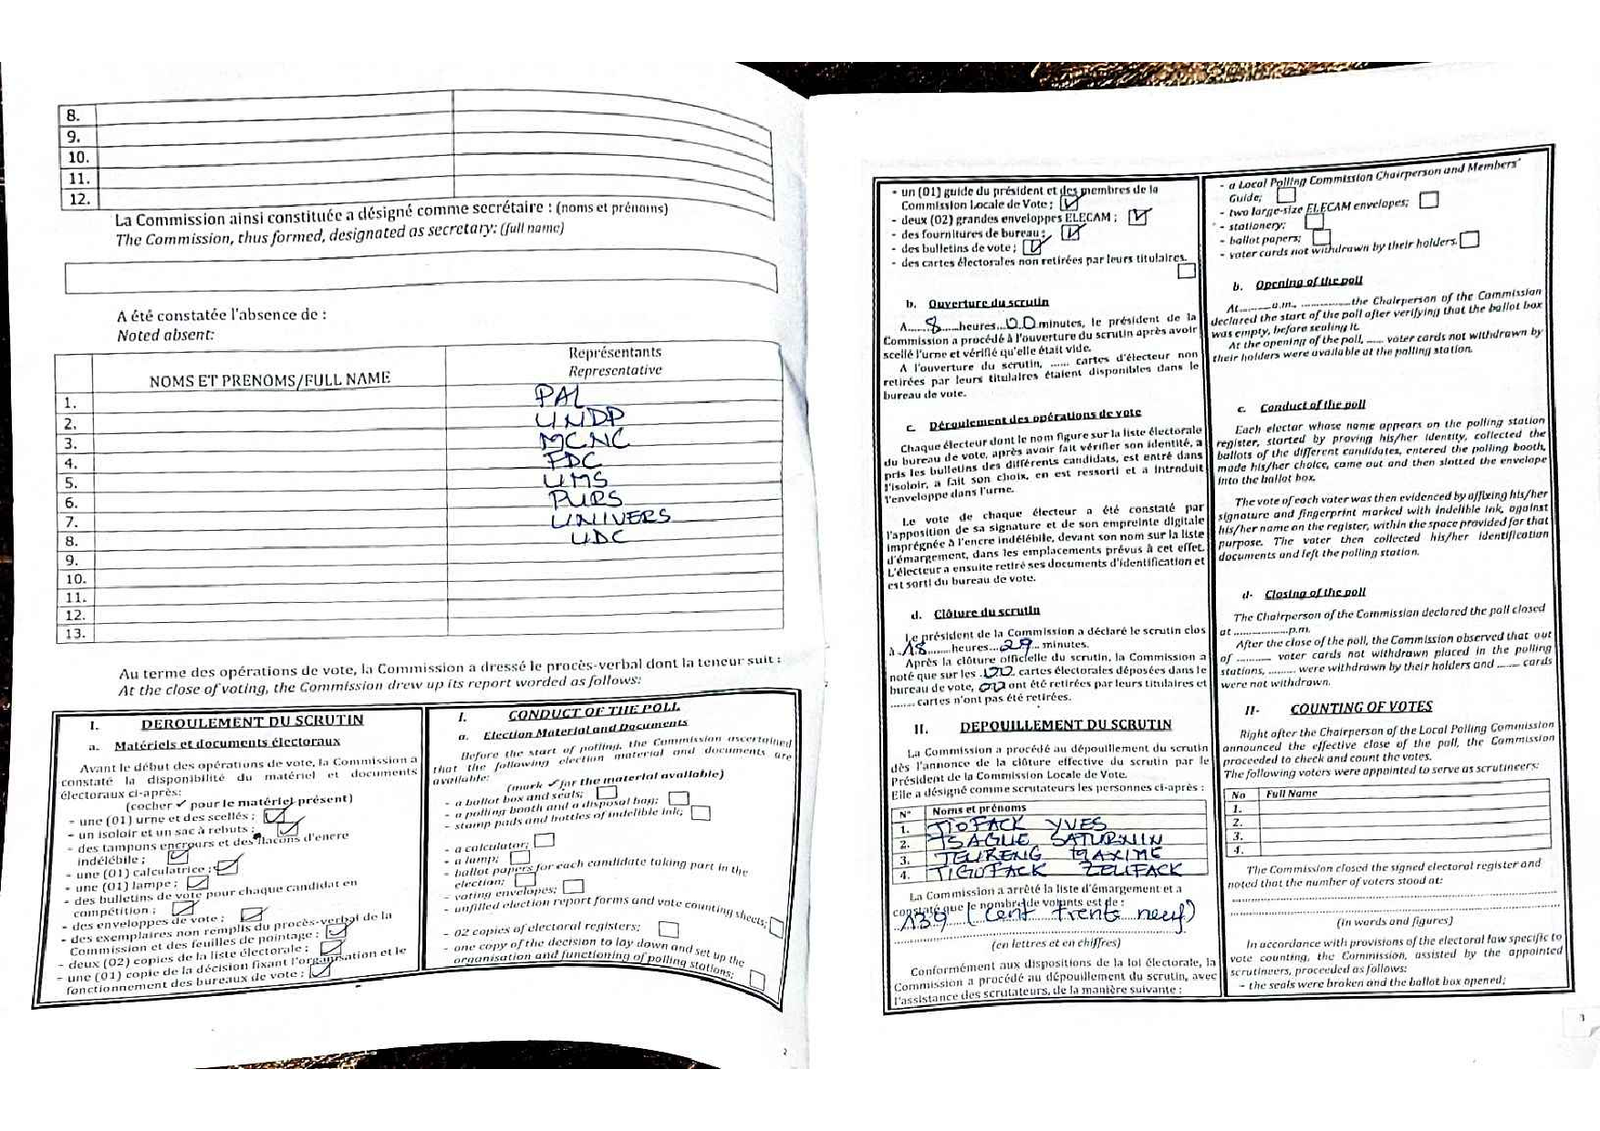 8.
9.
10.
11.
12.
La Commission ainsi constituée a désigné comme secrétaire : (noms et prénoms)
The Commission, thus formed, designated as secretary: (full name)
A été constatée l'absence de :
Noted absent:
NOMS ET PRENOMS/FULL NAME
Représentants
Representative
1. PAL
2. UNDP
3. MCNC
4. FDC
5. UMS
6. PURS
7. UNIVERS
8. UDC
9.
10.
11.
12.
13.
Au terme des opérations de vote, la Commission a dressé le procès-verbal dont la teneur suit :
At the close of voting, the Commission drew up its report worded as follows:
I. DEROULEMENT DU SCRUTIN
a. Matériels et documents électoraux
Avant le début des opérations de vote, la Commission a
constaté la disponibilité du matériel et documents
électoraux ci-après:
(cocher ✓ pour le matériel présent)
- une (01) urne et des scellés :
- un isoloir et un sac à rebuts :
- des tampons encreurs et des flacons d'encre
indélébile ;
- une (01) calculatrice ;
- une (01) lampe ;
- des bulletins de vote pour chaque candidat en
compétition ;
- des enveloppes de vote ;
- des exemplaires non remplis du procès-verbal de la
Commission et des feuilles de pointage ;
- deux (02) copies de la liste électorale ;
- une (01) copie de la décision fixant l'organisation et le
fonctionnement des bureaux de vote ;
I. CONDUCT OF THE POLL
a. Election Material and Documents
Before the start of polling, the Commission ascertained
that the following election material and documents are
available:
(mark ✓ for the material available)
- a ballot box and seals;
- a polling booth and a disposal bag;
- stamp pads and bottles of indelible ink;
- a calculator;
- a lamp;
- ballot papers for each candidate taking part in the
election;
- voting envelopes;
- unfilled election report forms and vote counting sheets;
- 02 copies of electoral registers;
- one copy of the decision to lay down and set up the
organisation and functioning of polling stations;
2
- un (01) guide du président et des membres de la
Commission Locale de Vote ;
- deux (02) grandes enveloppes ELECAM ;
- des fournitures de bureau ;
- des bulletins de vote ;
- des cartes électorales non retirées par leurs titulaires.
b. Ouverture du scrutin
A 8 heures 00 minutes, le président de la
Commission a procédé à l'ouverture du scrutin après avoir
scellé l'urne et vérifié qu'elle était vide.
A l'ouverture du scrutin, ...... cartes d'électeur non
retirées par leurs titulaires étaient disponibles dans le
bureau de vote.
c. Déroulement des opérations de vote
Chaque électeur dont le nom figure sur la liste électorale
du bureau de vote, après avoir fait vérifier son identité, a
pris les bulletins des différents candidats, est entré dans
l'isoloir, a fait son choix, en est ressorti et a introduit
l'enveloppe dans l'urne.
Le vote de chaque électeur a été constaté par
l'apposition de sa signature et de son empreinte digitale
imprégnée à l'encre indélébile, devant son nom sur la liste
d'émargement, dans les emplacements prévus à cet effet.
L'électeur a ensuite retiré ses documents d'identification et
est sorti du bureau de vote.
d. Clôture du scrutin
Le président de la Commission a déclaré le scrutin clos
à 18 heures 29 minutes.
Après la clôture officielle du scrutin, la Commission a
noté que sur les 00 cartes électorales déposées dans le
bureau de vote, 00 ont été retirées par leurs titulaires et
........ cartes n'ont pas été retirées.
II. DEPOUILLEMENT DU SCRUTIN
La Commission a procédé au dépouillement du scrutin
dès l'annonce de la clôture effective du scrutin par le
Président de la Commission Locale de Vote.
Elle a désigné comme scrutateurs les personnes ci-après :
N° Noms et prénoms
1. TIOFACK YVES
2. TSAGUE SATURNIN
3. TEUKENG MAXIME
4. TIGUFACK ZELIFACK
La Commission a arrêté la liste d'émargement et a
constaté que le nombre de votants est de :
139 (cent trente neuf)
(en lettres et en chiffres)
Conformément aux dispositions de la loi électorale, la
Commission a procédé au dépouillement du scrutin, avec
l'assistance des scrutateurs, de la manière suivante :
- a Local Polling Commission Chairperson and Members'
Guide;
- two large-size ELECAM envelopes;
- stationery;
- ballot papers;
- voter cards not withdrawn by their holders.
b. Opening of the poll
At........a.m., ..............the Chairperson of the Commission
declared the start of the poll after verifying that the ballot box
was empty, before sealing it.
At the opening of the poll, ...... voter cards not withdrawn by
their holders were available at the polling station.
c. Conduct of the poll
Each elector whose name appears on the polling station
register, started by proving his/her identity, collected the
ballots of the different candidates, entered the polling booth,
made his/her choice, came out and then slotted the envelope
into the ballot box.
The vote of each voter was then evidenced by affixing his/her
signature and fingerprint marked with indelible ink, against
his/her name on the register, within the space provided for that
purpose. The voter then collected his/her identification
documents and left the polling station.
d- Closing of the poll
The Chairperson of the Commission declared the poll closed
at .................p.m.
After the close of the poll, the Commission observed that out
of .......... voter cards not withdrawn placed in the polling
stations, ......... were withdrawn by their holders and ....... cards
were not withdrawn.
II- COUNTING OF VOTES
Right after the Chairperson of the Local Polling Commission
announced the effective close of the poll, the Commission
proceeded to check and count the votes.
The following voters were appointed to serve as scrutineers:
No Full Name
1.
2.
3.
4.
The Commission closed the signed electoral register and
noted that the number of voters stood at:
(in words and figures)
In accordance with provisions of the electoral law specific to
vote counting, the Commission, assisted by the appointed
scrutineers, proceeded as follows:
- the seals were broken and the ballot box opened;
3